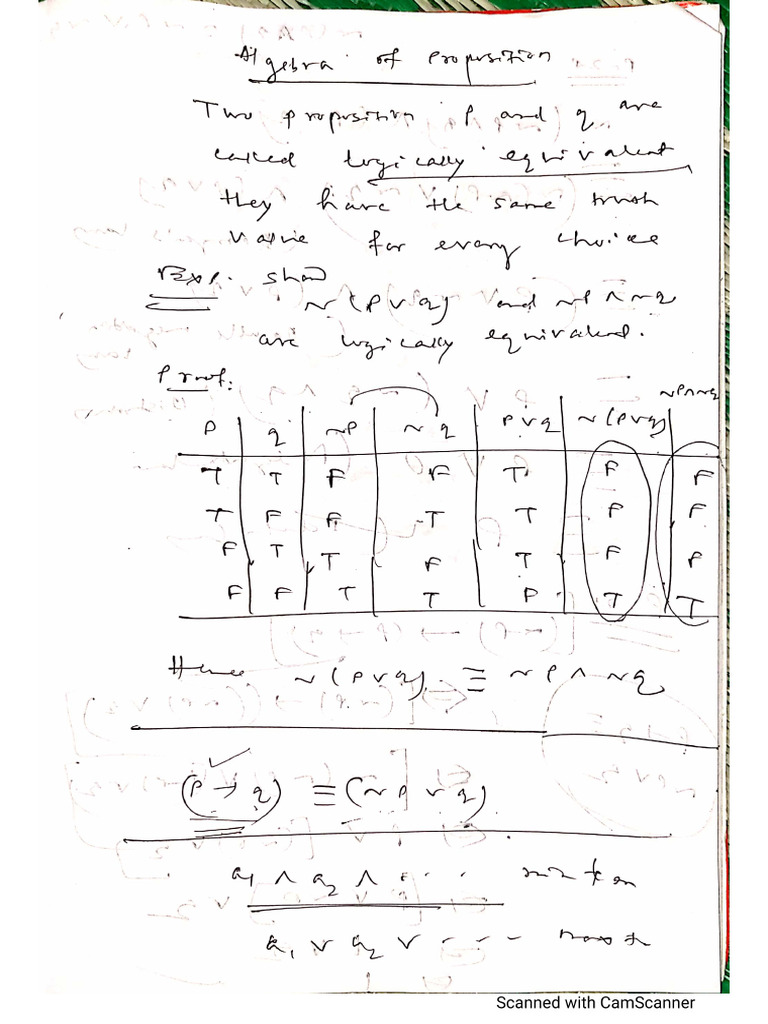 Algebra of Proposition
Two proposition P and q are
called logically equivalent
they have the same truth
value for every choice
Exp. show
~(P∨q) and ~P∧~q
are logically equivalent.
Proof:
P | q | ~P | ~q | P∨q | ~(P∨q) | ~P∧~q
T | T | F | F | T | F | F
T | F | F | T | T | F | F
F | T | T | F | T | F | F
F | F | T | T | F | T | T
Hence ~(P∨q) ≡ ~P∧~q
(P→q) ≡ (~P∨q)
a₁ ∧ a₂ ∧ ...
a₁ ∨ a₂ ∨ ---
Scanned with CamScanner